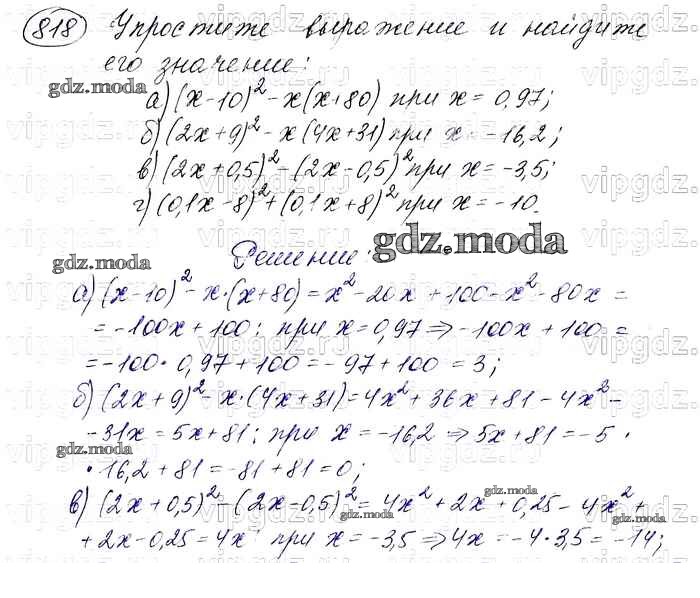 818 Упростите выражение и найдите
его значение:
gdz.moda
а) (x-10)² - x(x+80) при x = 0,97;
б) (2x+9)² - x(4x+31) при x = -16,2;
в) (2x+0,5)² - (2x-0,5)² при x = -3,5;
г) (0,1x-8)² + (0,1x+8)² при x = -10.
gdz.moda
gdz.moda
Решение:
а) (x-10)² - x·(x+80) = x² - 20x + 100 - x² - 80x =
= -100x + 100; при x = 0,97 ⇒ -100x + 100 =
= -100·0,97 + 100 = -97 + 100 = 3;
б) (2x+9)² - x·(4x+31) = 4x² + 36x + 81 - 4x² -
- 31x = 5x + 81; при x = -16,2 ⇒ 5x + 81 = -5 ·
gdz.moda
· 16,2 + 81 = -81 + 81 = 0;
в) (2x+0,5)² - (2x-0,5)² = 4x² + 2x + 0,25 - 4x² +
gdz.moda
gdz.moda
gdz.moda
+ 2x - 0,25 = 4x; при x = -3,5 ⇒ 4x = -4·3,5 = -14;